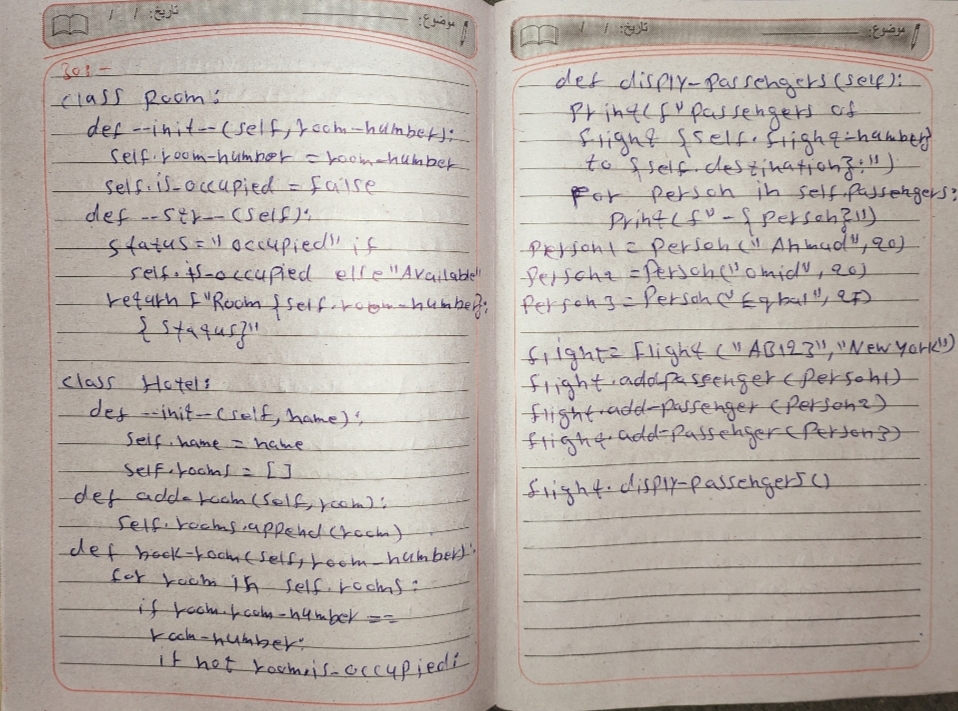 موضوع: تاریخ: / /
303-
class Room:
def __init__(self, room-number):
self.room-number = room-number
self.is-occupied = false
def --str--(self):
status = "occupied" if
self.is-occupied else "Available"
return f"Room {self.room-number}:
{status}"
class Hotel:
def --init--(self, name):
self.name = name
self.rooms = []
def add-room(self, room):
self.rooms.append(room)
def book-room(self, room-number):
for room in self.rooms:
if room.room-number ==
room-number:
if not room.is-occupied:
موضوع: تاریخ: / /
def disply-passengers(self):
Print(f"Passengers of
flight {self.flight-number}
to {self.destination}:")
For person in self.passengers:
Print(f"-{person}")
person1 = person("Ahmad", 20)
person2 = person("omid", 20)
person3 = Person("Eqbal", 25)
flight = Flight("AB123", "New York")
flight.add-passenger(person1)
flight.add-passenger(person2)
flight.add-passenger(person3)
flight.disply-passengers()